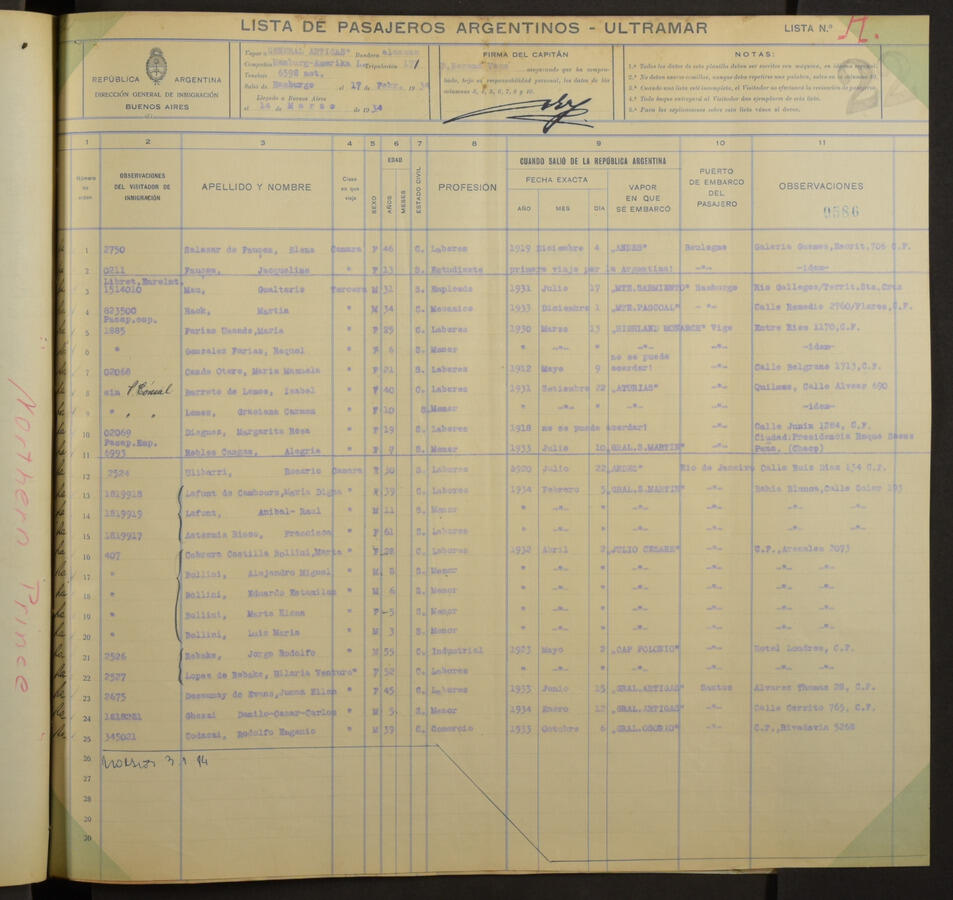 LISTA DE PASAJEROS ARGENTINOS - ULTRAMAR
LISTA N.º
REPÚBLICA ARGENTINA
DIRECCIÓN GENERAL DE INMIGRACIÓN
BUENOS AIRES
Vapor "GENERAL ARTIGAS" Bandera alemana
Compañía Hamburg-Amerika L. Tripulación
Toneladas 6398 net.
Salió de Hamburgo el 17 de Febr. 1934
Llegado a Buenos Aires
el 14 de Marzo de 1934
FIRMA DEL CAPITÁN
NOTAS:
1.ª Todos los datos de esta planilla deben ser escritos con máquina, en idioma español.
2.ª No deben usarse comillas, aunque deba repetirse una palabra, salvo en la columna 10.
3.ª Cuando una lista esté incompleta, el Visitador no efectuará la recepción de pasajeros.
4.ª Todo buque entregará al Visitador dos ejemplares de esta lista.
5.ª Para las
1 2 3 4 5 6 7 8 9 10 11
Número de orden
OBSERVACIONES DEL VISITADOR DE INMIGRACIÓN
APELLIDO Y NOMBRE
Clase en que viaja
SEXO
EDAD
AÑOS
MESES
ESTADO CIVIL
PROFESIÓN
CUANDO SALIÓ DE LA REPÚBLICA ARGENTINA
FECHA EXACTA
AÑO MES DIA
VAPOR EN QUE SE EMBARCÓ
PUERTO DE EMBARCO DEL PASAJERO
OBSERVACIONES
0586
1 2750 Salazar de Faupes, Elena Camara F 46 C. Labores 1919 Diciembre 4 „ANDES" Boulogne Galeria Guemes, Escrit, 706 C.F.
2 0211 Faupes, Jacqueline " F 13 S. Estudiante primera viaje por la Argentina! -"- -idem-
3 1514010 Gualterio Tercera M 31 S. Empleado 1931 Julio 17 „MTE.SARMIENTO" Hamburgo Rio Gallegos/Territ.Sta.Cruz
4 823500 Haok, Martin " M 34 S. Mecanico 1933 Diciembre 1 „MTE.PASCOAL" -"- Calle Remedio 2760/Flores, C.F.
5 1885 Farias Casado, Maria " F 25 C. Labores 1930 Marzo 13 „HIGHLAND MONARCH" Vigo Entre Rios 1170, C.F.
6 " Gonzalez Farias, Raquel " F 6 S. Menor -"- -"- -"- -"- -idem-
7 02068 Conde Otero, Maria Manuela " F 21 S. Labores 1912 Mayo 9 no se puede acordar! -"- Calle Belgrano 1713, C.F.
8 sin Barreto de Lemos, Isabel " F 40 C. Labores 1931 Setiembre 22 „ATURIAS" -"- Quilmes, Calle Alvear 690
9 " " " Lemos, Graciana Carmen " F 10 S. Menor -"- -"- -"- -"- -idem-
10 02069 Dieguez, Margarita Rosa " F 19 S. Labores 1918 no se puede acordar! -"- Calle Junin 1284, C.F.
Pasap.Esp. Ciudad: Presidencia Roque Saenz
11 6993 Robles Cangas, Alegria " F 7 S. Menor 1933 Julio 10 „GRAL.S.MARTIN" -"- Pena, (Chaco)
12 2524 Ulibarri, Rosario Camara F 30 S. Labores 1920 Julio 22 „ANDES" Rio de Janeiro Calle Ruiz Diaz 134 C.F.
13 1819918 Lafont de Cambours, Maria Digna " F 39 C. Labores 1934 Febrero 5 „GRAL.S.MARTIN" -"- Bahia Blanca, Calle Soler 103
14 1819919 Lafont, Anibal-Raul " M 11 S. Menor -"- -"- -"- -"- -"-
15 1819917 Francisca " F 61 S. Labores -"- -"- -"- -"- -"-
16 407 Cabrera Castilla Bollini, Maria " F 28 C. Labores 1932 Abril 2 „JULIO CESARE" -"- C.F., Arenales 2073
17 " Bollini, Alejandro Miguel " M 8 S. Menor -"- -"- -"- -"- -"-
18 " Bollini, Eduardo Estanilao " M 6 S. Menor -"- -"- -"- -"- -"-
19 " Bollini, Marta Elena " F 5 S. Menor -"- -"- -"- -"- -"-
20 " Bollini, Luis Maria " M 3 S. Menor -"- -"- -"- -"- -"-
21 2526 Rebake, Jorge Rodolfo " M 55 C. Industrial 1923 Mayo 2 „CAP POLONIO" -"- Hotel Londres, C.F.
22 2527 Lopez de Rebake, Hilaria Ventura " F 52 C. Labores -"- -"- -"- -"- -"-
23 2675 de Evans, Juana Ellen " F 45 C. Labores 1933 Junio 15 „GRAL.ARTIGAS" Santos Alvarez Thomas 28, C.F.
24 Ghezzi Danilo-Cesar-Carlos " M 5 S. Menor 1934 Enero 12 „GRAL.ARTIGAS" -"- Calle Cerrito 765, C.F.
25 345021 Codazzi, Rodolfo Eugenio " M 39 C. Comercio 1933 Octubre 6 „GRAL.OSORIO" -"- C.F., Rivadavia 5268
26
27
28
29
30
Northern Prince